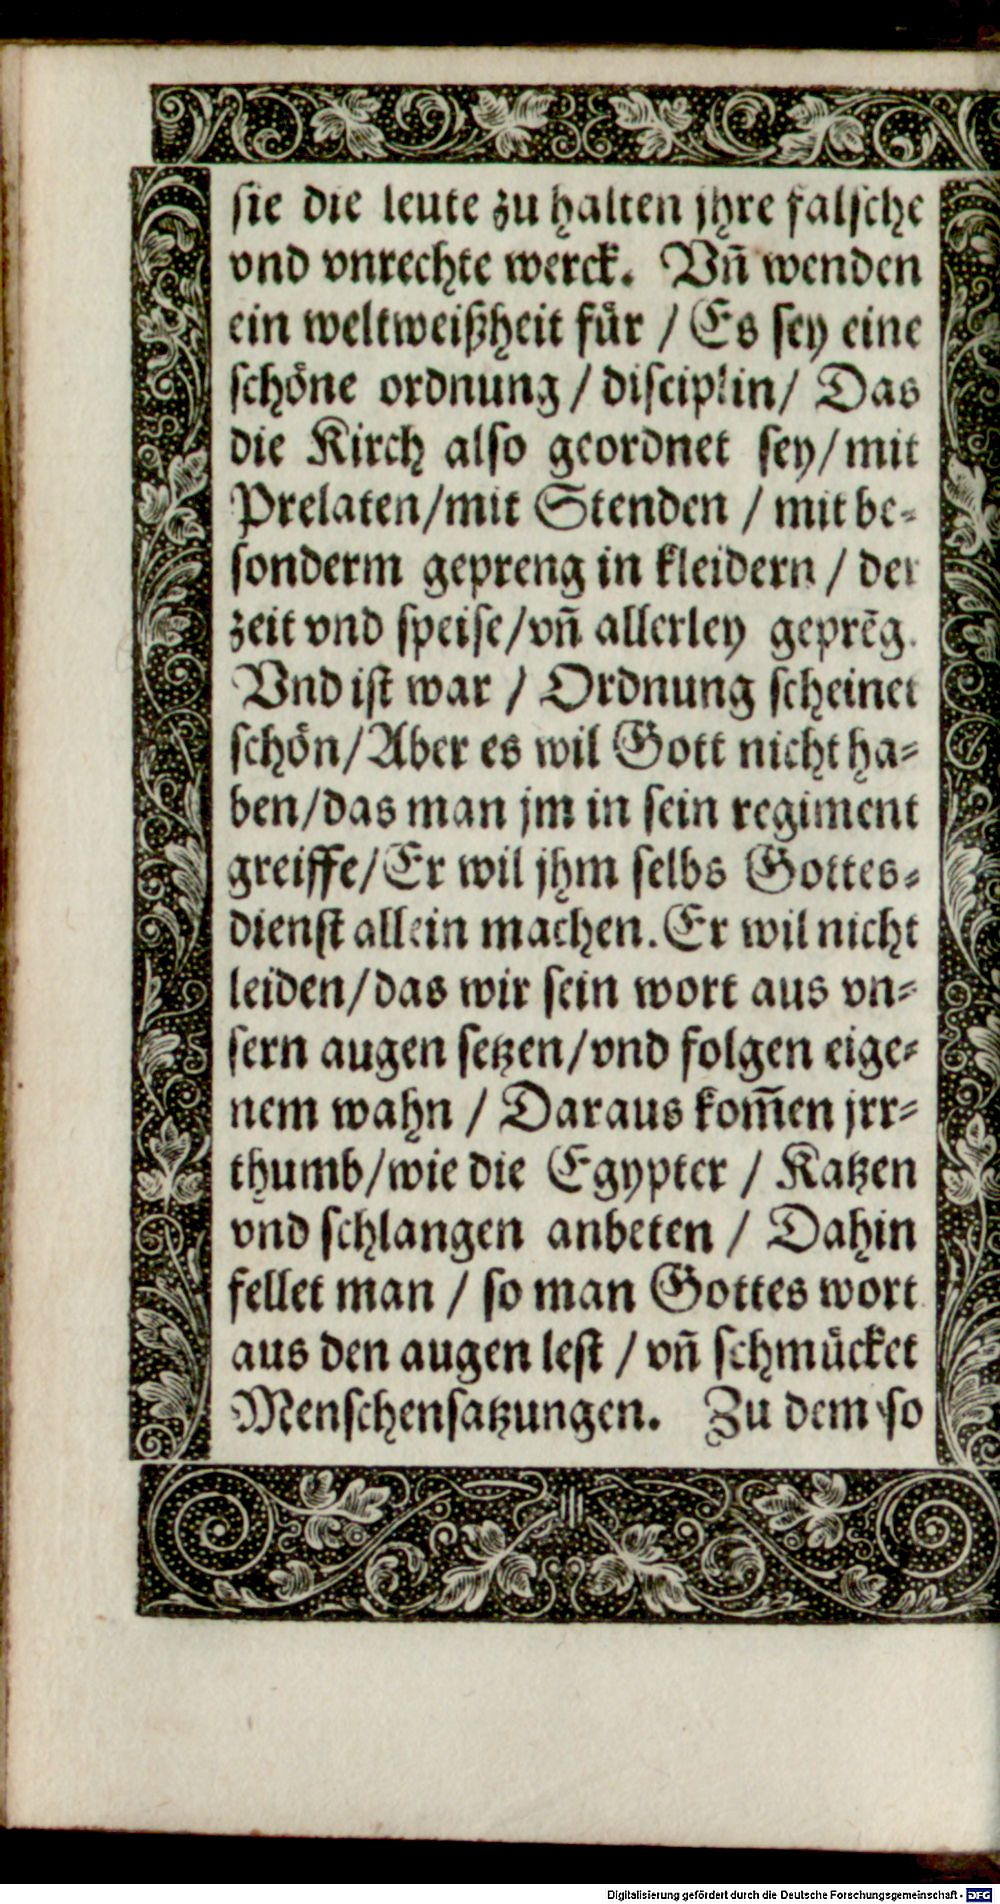 sie die leute zu halten jhre falsche
vnd vnrechte werck. Vñ wenden
ein weltweißheit für / Es sey eine
schöne ordnung / disciplin / Das
die Kirch also geordnet sey / mit
Prelaten / mit Stenden / mit be-
sonderm gepreng in kleidern / der
zeit vnd speise / vñ allerley geprẽg.
Vnd ist war / Ordnung scheinet
schön / Aber es wil Gott nicht ha-
ben / das man jm in sein regiment
greiffe / Er wil jhm selbs Gottes-
dienst allein machen. Er wil nicht
leiden / das wir sein wort aus vn-
sern augen setzen / vnd folgen eige-
nem wahn / Daraus kom̃en jrr-
thumb / wie die Egypter / Katzen
vnd schlangen anbeten / Dahin
fellet man / so man Gottes wort
aus den augen lest / vñ schmücket
Menschensatzungen. Zu dem so
Digitalisierung gefördert durch die Deutsche Forschungsgemeinschaft - DFG